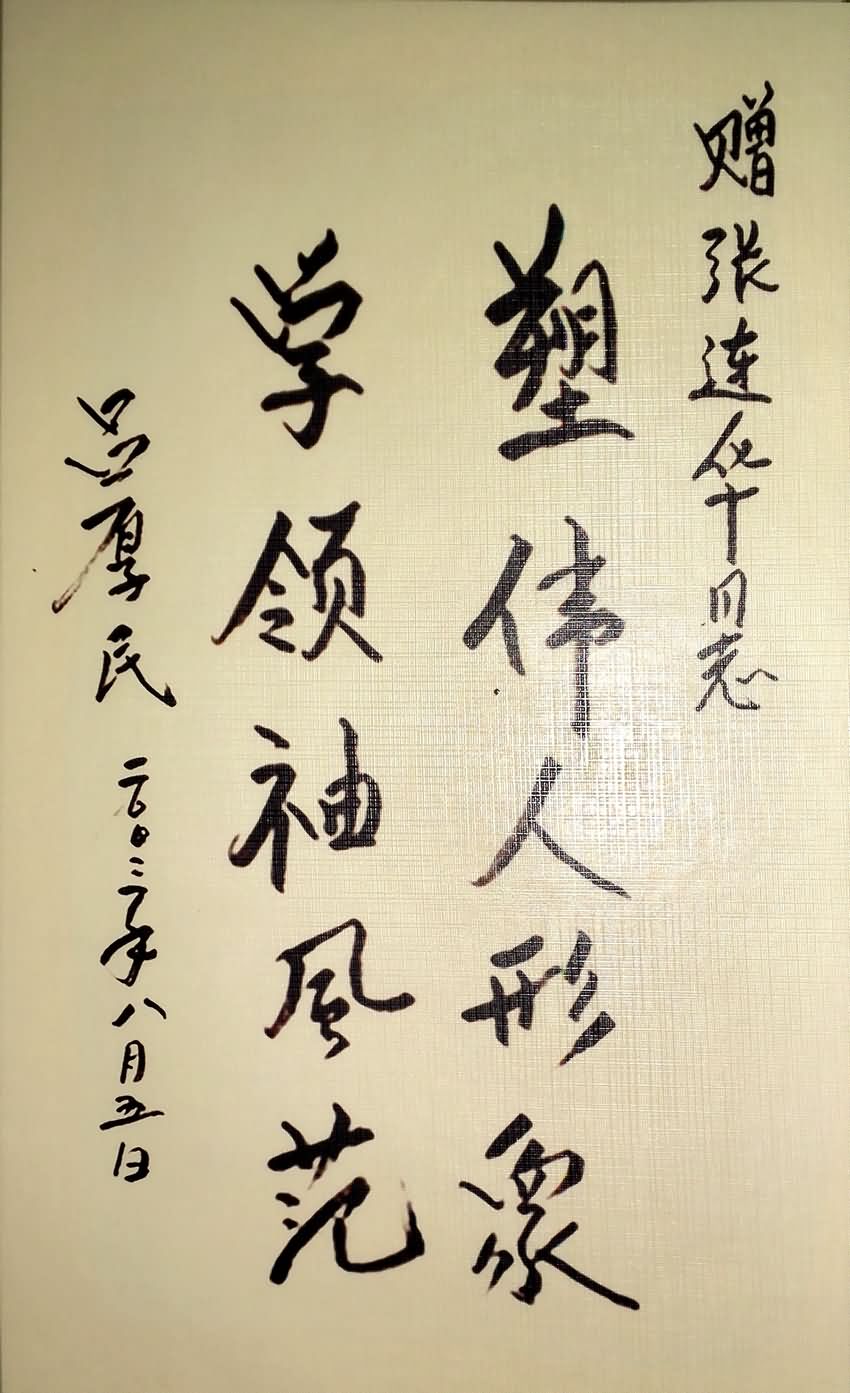 赠张连华同志
塑伟人形象
学领袖風范
吕厚民 二〇〇三年八月五日